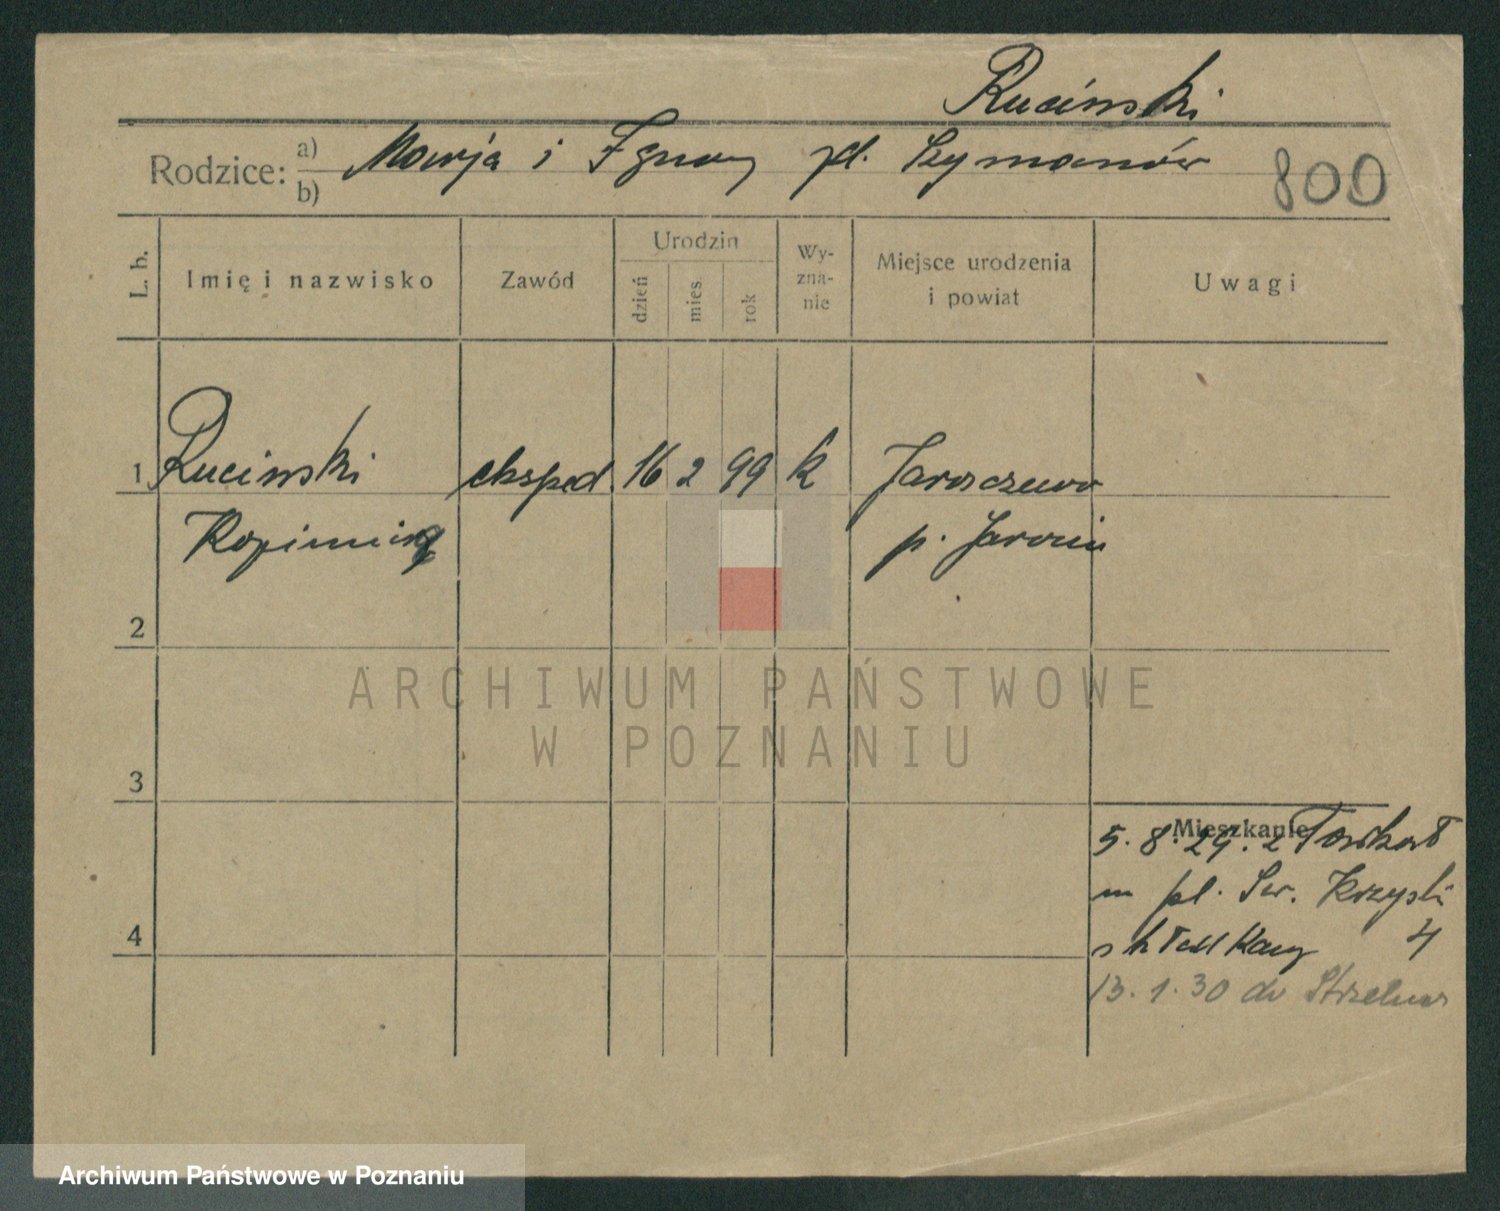 Ruciński
Rodzice: a) b) Marja i Ignacy pd. Szymanów
800
L. b. Imię i nazwisko Zawód Urodzin dzień mies. rok Wy-zna-nie Miejsce urodzenia i powiat Uwagi
1 Ruciński eksped. 16 2 99 k Jaroszewo
Kazimierz p. Jarocin
2
3
Mieszkanie
5. 8. 29. z
m pl. Św. Krzyski
4
4
13. 1. 30 do Strzelna
ARCHIWUM PAŃSTWOWE
W POZNANIU
Archiwum Państwowe w Poznaniu